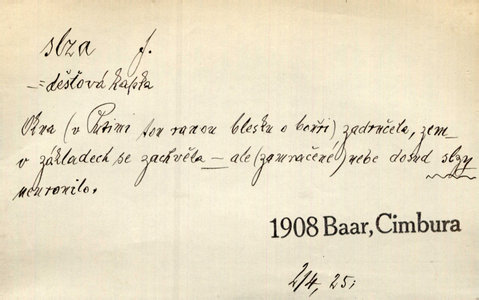 slza f.
= dešťová kapka
Okna (v Putimi tou ranou blesku o bouři) zadrnčela, zem
v základech se zachvěla — ale (zamračené) nebe dosud slzy
neuronilo.
1908 Baar, Cimbura
214, 25;